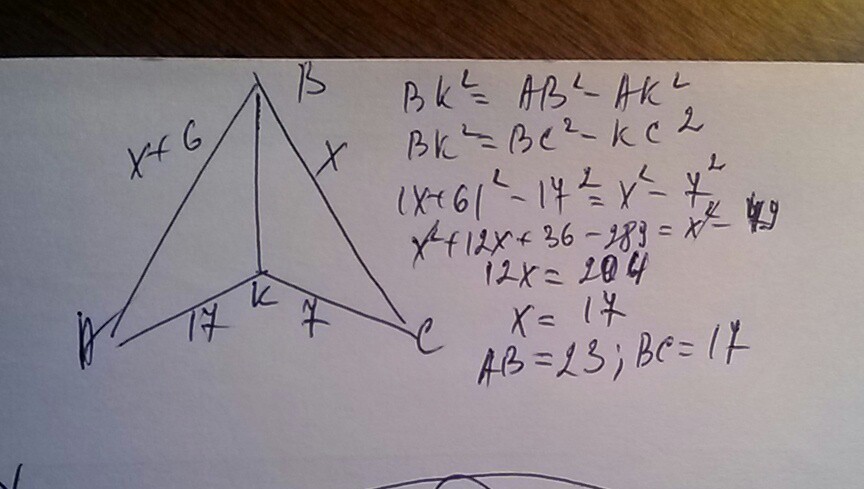 B
x+6
x
A
K
17
7
C
BK²= AB²- AK²
BK²= BC²- KC²
(x+6)²-17²= x²- 7²
x²+12x+36-289= x²- 49
12x= 204
x= 17
AB=23; BC=17